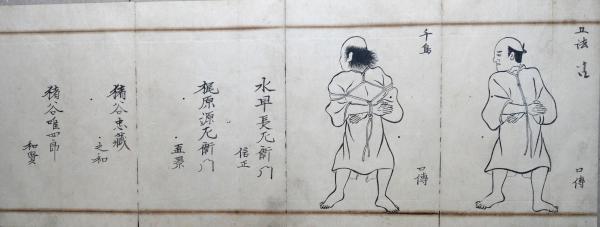 口傳
千鳥
口傳
水早長左衛門
信正
梶原源左衛門
直景
猪谷忠藏
之和
猪谷唯四郎
和賢